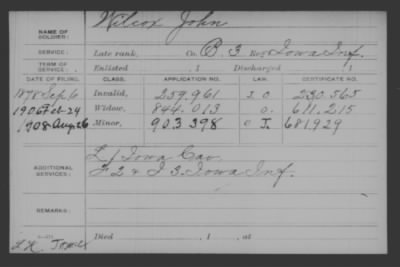 NAME OF SOLDIER: Wilcox John
SERVICE: Late rank, Co. B. 3 Reg't Iowa Inf.
TERM OF SERVICE: Enlisted , 1 Discharged
DATE OF FILING. CLASS. APPLICATION NO. LAW. CERTIFICATE NO.
1878 Sep 6 Invalid, 259,961 230.565
1906 Feb-24 Widow, 844.013 o. 611.215
1908 Aug 26 Minor, 903 398 O I. 681.929
ADDITIONAL SERVICES: L 1 Iowa Cav.
F 2 & I 3. Iowa Inf.
REMARKS:
Died , 1 , at